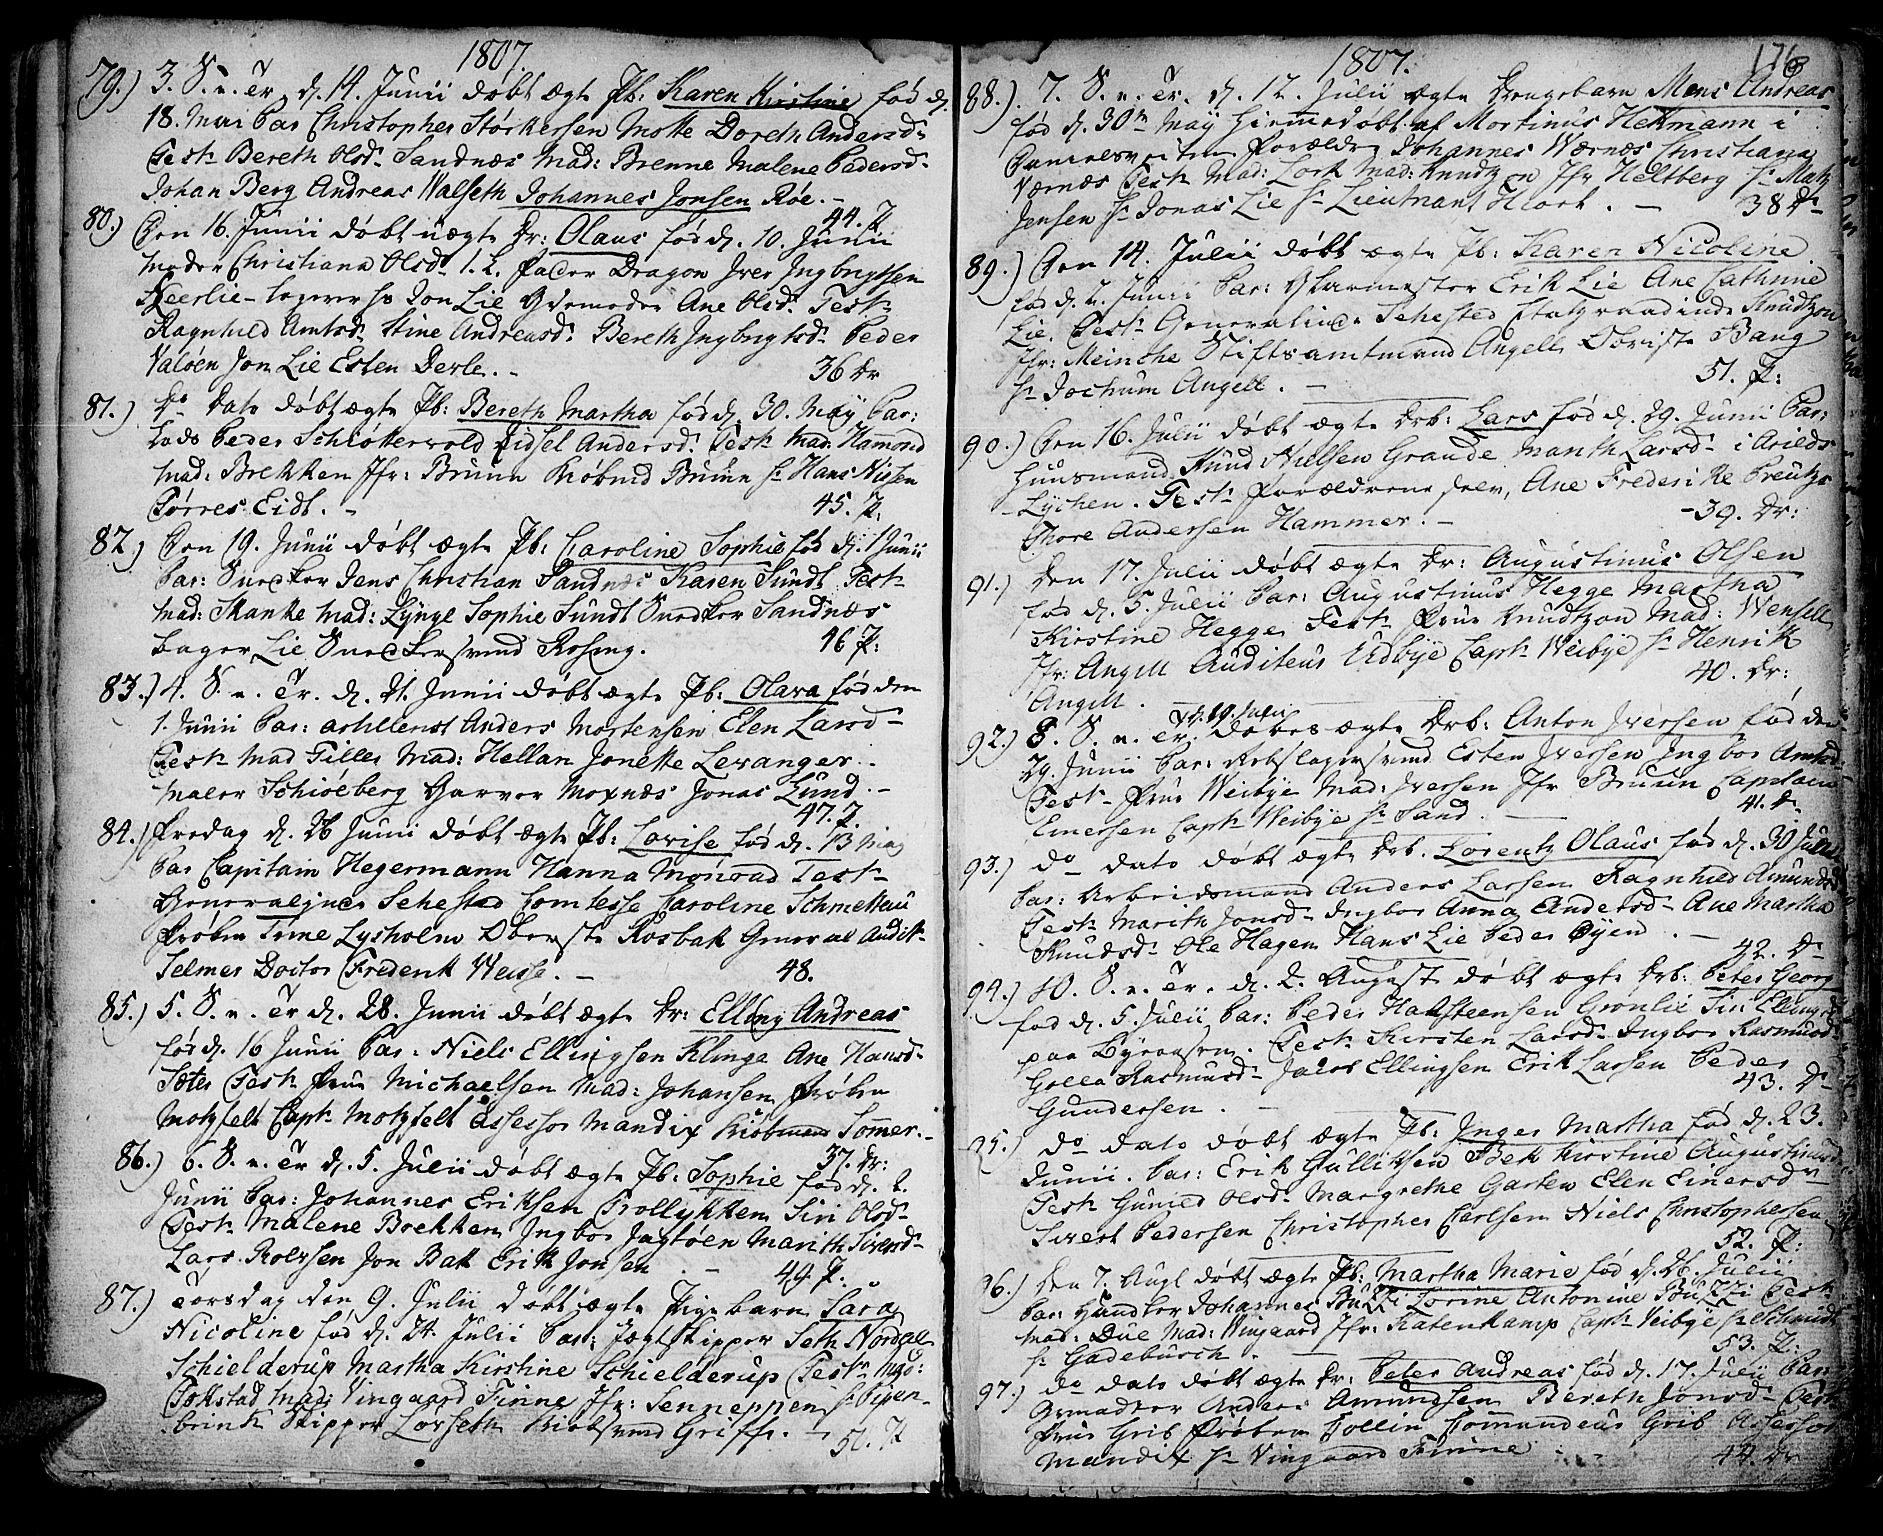 1807.
79.) 3. S. e. Tr. d. 14. Junii døbt ægte Pb: Karen Kirstine fød d.
18. Mai Par Christopher Størkersen Mette Doreth Andersd:
Test: Bereth Olsd. Sandnæs Mad: Brenne Malene Pedersd.
Johan Berg Andreas Walseth Johannes Jonsen Røe. -
44. P.
80.) Den 16. Junii døbt uægte Dr: Olaus fød d. 10. Junii
Moder Christiana Olsd. 1. L. Fader Dragon Iver Ingbrigtsen
logerer hs Jon Lie Gdemoder Ane Olsd. Test:
Ragnhild Amtsd. Stine Andreasd. Bereth Ingbrigtsd. Peder
Valøen Jon Lie Esten Derle. -
36 Dr
81.) Do Dato døbt ægte Pb: Bereth Martha fød d. 30. May Par:
Lods Peder Schiøtterwold Sidsel Andersd. Test: Mad. Hamond
Mad: Brekken Jfr: Bruun Kiøbmd Bruun Hr Hans Nissen
Tørres Eidt. -
45. P:
82.) Den 19. Junii døbt ægte Pb: Caroline Sophie fød d. 1 Junii
Par: Snedker Jens Christian Sandnæs Karen Sundt Test:
Mad: Skanke Mad: Lynge Sophie Sundt Snedker Sandnæs
Bager Lie Snedkersvend Rosing.
46 P:
83.) 4. S. e. Tr. d. 21. Junii døbt ægte Pb: Olava fød den
1. Junii Par: Artillerist Anders Mortensen Elen Larsd-
Test: Mad Tiller Mad: Hellan Jonette Levanger. -
Maler Schiølberg Garver Moxnæs Jonas Lund. -
47. P.
84.) Fredag d. 26 Junii døbt ægte Pb: Lovise fød d. 13 May
Par Capitain Hegermann Hanna Monrad Test:
Generalinde Sehested Comtesse Caroline Schmettau
Frøken Trine Lysholm Oberste Rosbak General Audit:
Selmer Doctor Frederik Weise. -
48.
85.) 5. S. e. Tr d. 28. Junii døbt ægte Dr: Elling Andreas
fød d. 16 Junii Par: Niels Ellingsen Klinge Ane Hansd.
Sæter Test: Frue Michaelsen Mad: Johansen Frøken
Motzfelt Capt: Motzfelt Assessor Mandix Kiøbmand Sommer. -
37. Dr:
86.) 6. S. e. Tr d. 5. Julii døbt ægte Pb: Sophie fød d. 2.
Junii Par: Johannes Eriksen Trollykken Siri Olsd-
Test: Malene Brekken Ingbor Jagtøen Marith Siversd-
Lars Roelsen Jon Bak Erik Jonsen. -
49. P.
87.) Torsdag den 9. Julii døbt ægte Pigebarn Sara
Nicoline fød d. 24. Julii Par: Jægtskipper Seth Nordal
Schielderup Martha Kirstine Schielderup Test: Mad:
Tokstad Mad: Vingaard Finne Jfr: Senneppen Hr Pipen-
brink Skipper Lorseth Kiøbsvend Griffe. -
50. P
1807.
176
88.) 7. S. e. Tr. d. 12. Julii ægte Drengebarn Mons Andreas
fød d. 30te May hiemmedøbt af Mortinus Hetmann i
Forældre Johannes Wærnæs Christiana
Værnæs Test: Mad: Lork Mad: Knudtzon Jfr Heltberg Hr Matz
Jensen Hr Jonas Lie Hr Lieutnant Hiort. -
38 Dr
89.) Den 14. Julii døbt ægte Pb: Karen Nicoline
fød d. 2. Junii Par: Glarmester Erik Lie Ane Cathrine
Lie. Test: Generalinde Sehested Etatsraadinde Knudtzon
Jfr: Meinche Stiftsamtmand Angell Oberste Bang
Hr Jochum Angell. -
51. P:
90.) Den 16. Julii døbt ægte Drb: Lars fød d. 29. Junii Par:
Huusmand Knud Nielsen Graude Marith Larsd- i Arilds
Lychen. Test: Forældrene selv, Ane Frederike Preutz
Thore Andersen Hammer. -
39. Dr:
91.) Den 17. Julii døbt ægte Dr: Augustinus Olsen
fød d. 5. Julii Par: Augustinus Hegge Martha
Kirstine Hegge Test: Frue Knudtzon Mad: Wensell
Jfr: Angell Auditeur Udbye Capt: Weibye Hr Henrik
Angell.
40. Dr:
92.) 8. S. e. Tr. d. 19. Julii døbes ægte Drb: Anton Iversen fød den
29. Junii Par: Rebslagersvend Esten Iversen Ingbor Amtsd-
Test- Frue Weibye Mad: Iversen Jfr Bruun Capitain
Einersen Capt: Weibye Hr Sand.
41. Dr.
93.) do Dato døbt ægte Drb. Lorentz Olaus fød d. 30 Junii
Par: Arbeidsmand Anders Larsen Ragnhild Amundsd
Test: Marith Jonsd- Ingbor Anna Andersd- Ane Martha
Knudsd. Ole Hagen Hans Lie Peder Øyen. -
42. Dr
94.) 10. S. e. Tr. d. 2. August døbt ægte Drb: Peter Georg
fød d. 5. Julii Par: Peder Halsteensen Grønlie Siri Ellingsd
paa Byeaasen. Test: Kirsten Larsd- Ingbor Rasmusd-
Golla Rasmusd- Jacob Ellingsen Erik Larsen Peder
Gundersen. -
43. Dr
95.) do Dato døbt ægte Pb: Inger Martha fød d. 23.
Junii. Par: Erik Gulliksen Bek Kirstine Augustinusd-
Test: Gunild Olsd. Margrethe Garten Elen Einersd-
Sivert Pedersen Christopher Carlsen Niels Christophersen
52. P:
96.) Den 7. Augt døbt ægte Pb: Martha Marie fød d. 26. Julii
Par: Johannes Buzzi Lorine Antonine Buzzi Test-
Mad: Due Mad: Wingaard Jfr: Katenkamp Capt: Veibye Hr Schmidt
Hr Gadebusch. -
53. P:
97.) do Dato døbt ægte Dr: Peter Andreas fød d. 17. Julii Par:
Anders Amundsen Bereth Jonsd- Test-
Frue Grib Frøken Tollin Commandeur Grib Assessor
Mandix Hr Vingaard Finne.
44. Dr